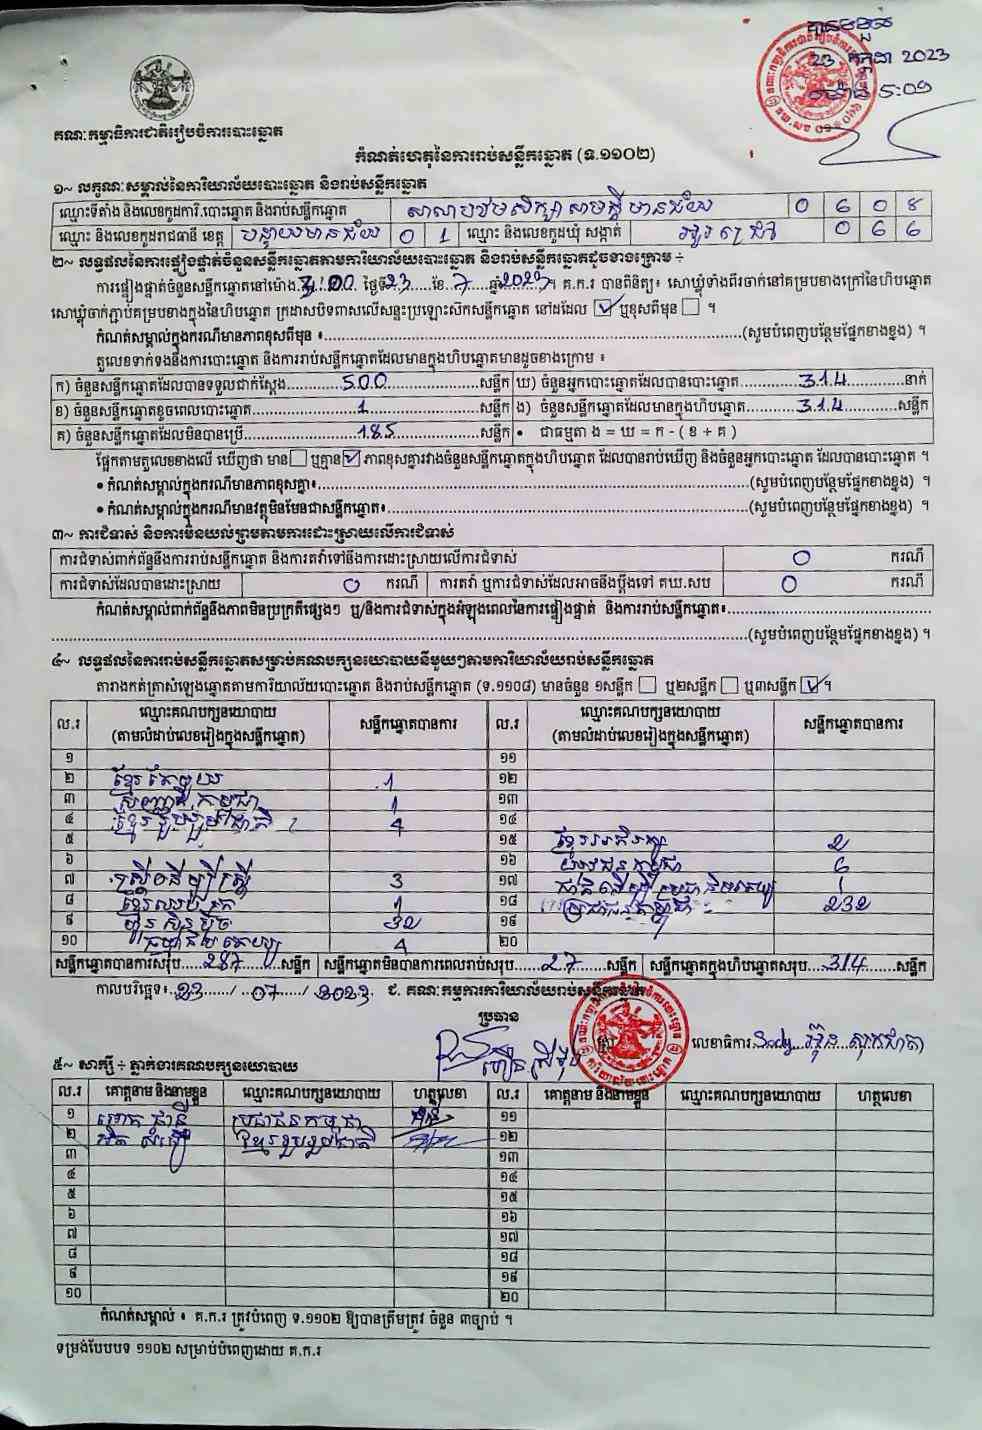 គណៈកម្មាធិការជាតិរៀបចំការបោះឆ្នោត
23 កក្កដា 2023
កំណត់ហេតុនៃការរាប់សន្លឹកឆ្នោត (ទ.១១០២)
១~ លក្ខណៈសម្គាល់នៃការិយាល័យបោះឆ្នោត និងរាប់សន្លឹកឆ្នោត
ឈ្មោះទីតាំង និងលេខកូដការិ.បោះឆ្នោត និងរាប់សន្លឹកឆ្នោត សាលាបឋមសិក្សា សាមគ្គីមានជ័យ 0 6 0 8
ឈ្មោះ និងលេខកូដរាជធានី ខេត្ត បន្ទាយមានជ័យ 0 1 ឈ្មោះ និងលេខកូដឃុំ សង្កាត់ អូរជ្រៅ 0 6 6
២~ លទ្ធផលនៃការផ្ទៀងផ្ទាត់ចំនួនសន្លឹកឆ្នោតតាមការិយាល័យបោះឆ្នោត និងរាប់សន្លឹកឆ្នោតដូចខាងក្រោម ÷
ការផ្ទៀងផ្ទាត់ចំនួនសន្លឹកឆ្នោតនៅម៉ោង 3:00 ថ្ងៃទី 23 ខែ 7 ឆ្នាំ 2023 ។ គ.ក.រ បានពិនិត្យ៖ សោឃ្លុំទាំងពីរចាក់នៅគម្របខាងក្រៅនៃហិបឆ្នោត
សោឃ្លុំចាក់ភ្ជាប់គម្របខាងក្នុងនៃហិបឆ្នោត ក្រដាសបិទពាសលើសន្ទះប្រឡោះស៊កសន្លឹកឆ្នោត នៅដដែល ☑ ឬខុសពីមុន ☐ ។
កំណត់សម្គាល់ក្នុងករណីខុសពីមុន ៖ (សូមបំពេញបន្ថែមផ្នែកខាងខ្នង) ។
តួលេខទាក់ទងនឹងការបោះឆ្នោត និងការរាប់សន្លឹកឆ្នោតដែលមានក្នុងហិបឆ្នោតមានដូចខាងក្រោម ៖
ក) ចំនួនសន្លឹកឆ្នោតដែលបានទទួលជាក់ស្តែង 500 សន្លឹក ឃ) ចំនួនអ្នកបោះឆ្នោតដែលបានបោះឆ្នោត 314 នាក់
ខ) ចំនួនសន្លឹកឆ្នោតខូចពេលបោះឆ្នោត 1 សន្លឹក ង) ចំនួនសន្លឹកឆ្នោតដែលមានក្នុងហិបឆ្នោត 314 សន្លឹក
គ) ចំនួនសន្លឹកឆ្នោតដែលមិនបានប្រើ 185 សន្លឹក • ជាធម្មតា ង = ឃ = ក - ( ខ + គ )
ផ្អែកតាមតួលេខខាងលើ ឃើញថា មាន ☐ ឬគ្មាន ☑ ភាពខុសគ្នារវាងចំនួនសន្លឹកឆ្នោតក្នុងហិបឆ្នោត ដែលបានរាប់ឃើញ និងចំនួនអ្នកបោះឆ្នោត ដែលបានបោះឆ្នោត ។
• កំណត់សម្គាល់ក្នុងករណីមានភាពខុសគ្នា៖ (សូមបំពេញបន្ថែមផ្នែកខាងខ្នង) ។
• កំណត់សម្គាល់ក្នុងករណីមានវត្ថុមិនមែនជាសន្លឹកឆ្នោត៖ (សូមបំពេញបន្ថែមផ្នែកខាងខ្នង) ។
៣~ ការជំទាស់ និងការមិនយល់ព្រមតាមការដោះស្រាយលើការជំទាស់
ការជំទាស់ពាក់ព័ន្ធនឹងការរាប់សន្លឹកឆ្នោត និងការតវ៉ាទៅនឹងការដោះស្រាយលើការជំទាស់ 0 ករណី
ការជំទាស់ដែលបានដោះស្រាយ 0 ករណី ការតវ៉ា ឬការជំទាស់ដែលអាចនឹងប្តឹងទៅ គឃ.សប 0 ករណី
កំណត់សម្គាល់ពាក់ព័ន្ធនឹងភាពមិនប្រក្រតីផ្សេងៗ ឬ/និងការជំទាស់ក្នុងអំឡុងពេលនៃការផ្ទៀងផ្ទាត់ និងការរាប់សន្លឹកឆ្នោត៖
(សូមបំពេញបន្ថែមផ្នែកខាងខ្នង) ។
៤~ លទ្ធផលនៃការរាប់សន្លឹកឆ្នោតសម្រាប់គណបក្សនយោបាយនីមួយៗតាមការិយាល័យរាប់សន្លឹកឆ្នោត
តារាងកត់ត្រាសំឡេងឆ្នោតតាមការិយាល័យបោះឆ្នោត និងរាប់សន្លឹកឆ្នោត (ទ.១១០៨) មានចំនួន ១សន្លឹក ☐ ឬ២សន្លឹក ☐ ឬ៣សន្លឹក ☑ ។
ល.រ ឈ្មោះគណបក្សនយោបាយ (តាមលំដាប់លេខរៀងក្នុងសន្លឹកឆ្នោត) សន្លឹកឆ្នោតបានការ ល.រ ឈ្មោះគណបក្សនយោបាយ (តាមលំដាប់លេខរៀងក្នុងសន្លឹកឆ្នោត) សន្លឹកឆ្នោតបានការ
១ ១១
២ ខ្មែរតែមួយ 1 ១២
៣ សញ្ជាតិកម្ពុជា 1 ១៣
៤ ខ្មែររួបរួមជាតិ 4 ១៤
៥ ១៥ ខ្មែរអភិរក្ស 2
៦ ១៦ យុវជនកម្ពុជា 6
៧ ស្ត្រីដើម្បីស្ត្រី 3 ១៧ 1
៨ ខ្មែរឈប់ក្រ 1 ១៨ ប្រជាជនកម្ពុជា 232
៩ ហ៊្វុនស៊ិនប៉ិច 32 ១៩
១០ 4 ២០
សន្លឹកឆ្នោតបានការសរុប 287 សន្លឹក សន្លឹកឆ្នោតមិនបានការពេលរាប់សរុប 27 សន្លឹក សន្លឹកឆ្នោតក្នុងហិបឆ្នោតសរុប 314 សន្លឹក
កាលបរិច្ឆេទ៖ 23 / 07 / 2023 ជ. គណៈកម្មការការិយាល័យរាប់សន្លឹកឆ្នោត
ប្រធាន
លេខាធិការ
៥~ សាក្សី ÷ ភ្នាក់ងារគណបក្សនយោបាយ
ល.រ គោត្តនាម និងនាមខ្លួន ឈ្មោះគណបក្សនយោបាយ ហត្ថលេខា ល.រ គោត្តនាម និងនាមខ្លួន ឈ្មោះគណបក្សនយោបាយ ហត្ថលេខា
១ ប្រជាជនកម្ពុជា ១១
២ ខ្មែររួបរួមជាតិ ១២
៣ ១៣
៤ ១៤
៥ ១៥
៦ ១៦
៧ ១៧
៨ ១៨
៩ ១៩
១០ ២០
កំណត់សម្គាល់ ៖ គ.ក.រ ត្រូវបំពេញ ទ.១១០២ ឱ្យបានត្រឹមត្រូវ ចំនួន ៣ច្បាប់ ។
ទម្រង់បែបបទ ១១០២ សម្រាប់បំពេញដោយ គ.ក.រ